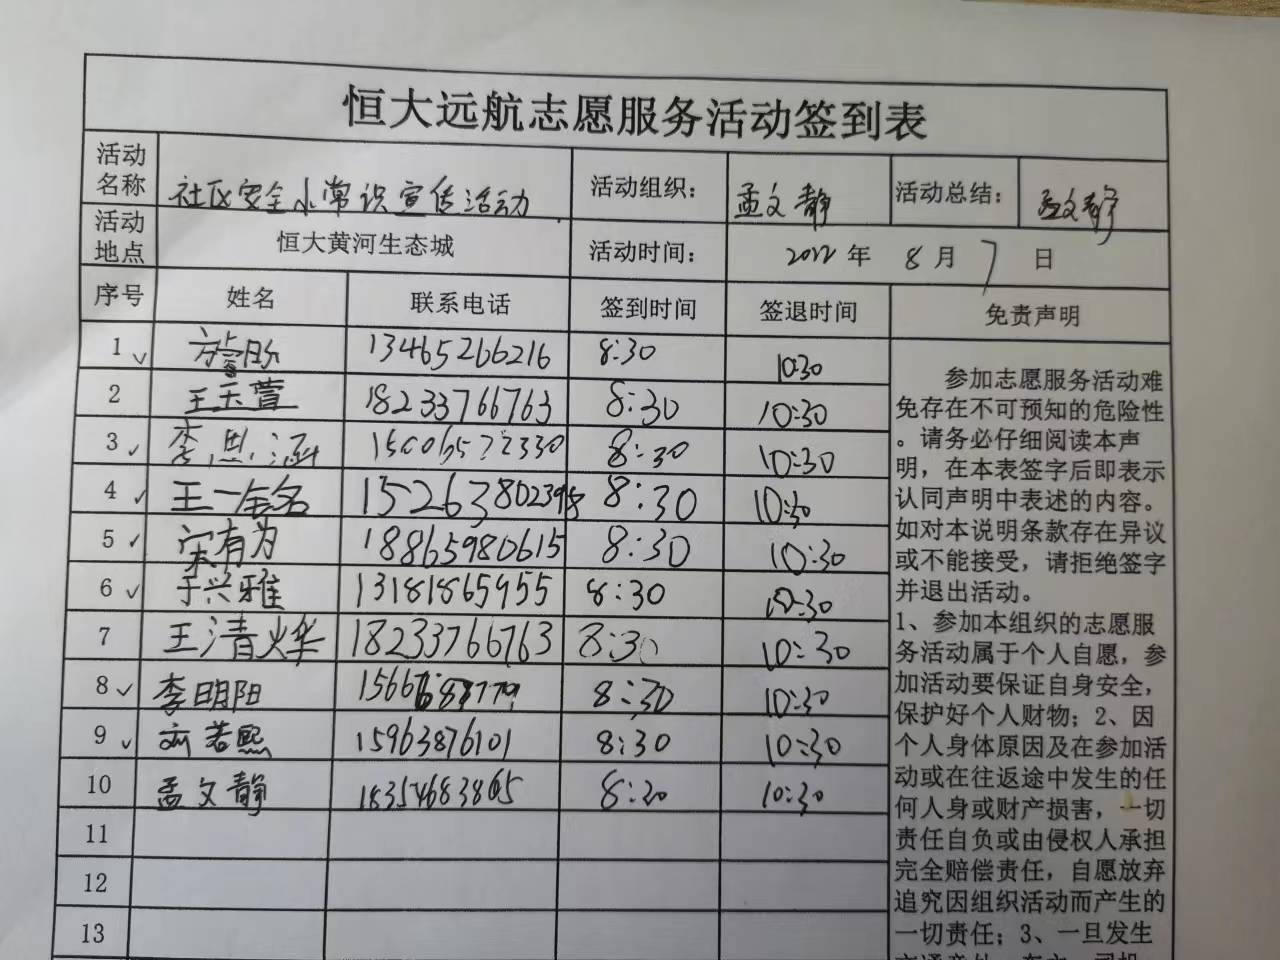 恒大远航志愿服务活动签到表
活动名称 社区安全小常识宣传活动 活动组织： 孟文静 活动总结： 孟文静
活动地点 恒大黄河生态城 活动时间： 2022 年 8 月 7 日
序号 姓名 联系电话 签到时间 签退时间 免责声明
1 13465266216 8:30 10:30
2 王玉萱 18233766763 8:30 10:30
3 李思涵 15006522330 8:30 10:30
4 王一全名 8:30 10:30
5 宋有为 18865980615 8:30 10:30
6 于兴雅 13181865955 8:30 10:30
7 王清烨 18233766763 8:30 10:30
8 李明阳 8:30 10:30
9 刘若熙 15963876101 8:30 10:30
10 孟文静 18354683865 8:30 10:30
11
12
13
参加志愿服务活动难
免存在不可预知的危险性
。请务必仔细阅读本声
明，在本表签字后即表示
认同声明中表述的内容。
如对本说明条款存在异议
或不能接受，请拒绝签字
并退出活动。
1、参加本组织的志愿服
务活动属于个人自愿，参
加活动要保证自身安全，
保护好个人财物；2、因
个人身体原因及在参加活
动或在往返途中发生的任
何人身或财产损害，一切
责任自负或由侵权人承担
完全赔偿责任，自愿放弃
追究因组织活动而产生的
一切责任；3、一旦发生